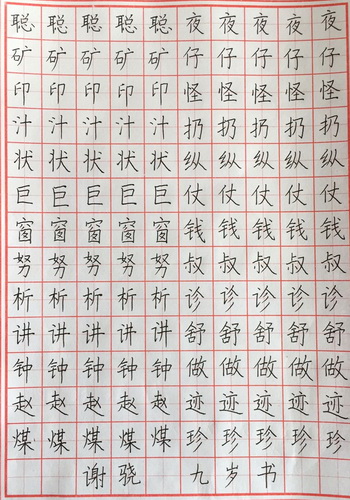 聪聪聪聪聪夜夜夜夜夜
矿矿矿矿矿仔仔仔仔仔
印印印印印怪怪怪怪怪
汁汁汁汁汁扔扔扔扔扔
状状状状状纵纵纵纵纵
巨巨巨巨巨仗仗仗仗仗
窗窗窗窗窗钱钱钱钱钱
努努努努努叔叔叔叔叔
析析析析析诊诊诊诊诊
讲讲讲讲讲舒舒舒舒舒
钟钟钟钟钟做做做做做
赵赵赵赵赵迹迹迹迹迹
煤煤煤煤煤珍珍珍珍珍
谢骁 九岁书